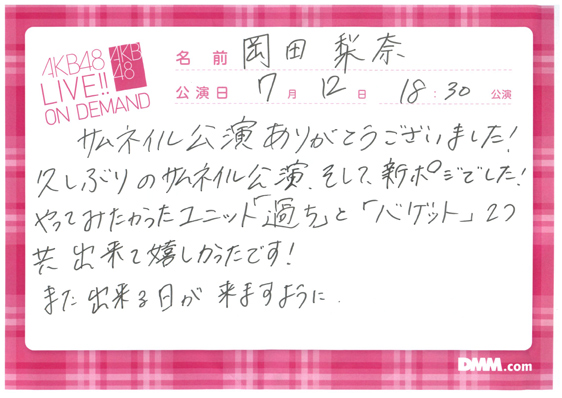 AKB48
LIVE!!
ON DEMAND
AKB
48
名前 岡田 梨奈
公演日 7月 12日 18:30 公演
サムネイル公演ありがとうございました!
久しぶりのサムネイル公演、そして、新ポジでした!
やってみたかったユニット「過ち」と「バゲット」2つ
共出来て嬉しかったです!
また出来る日が来ますように.
DMM.com